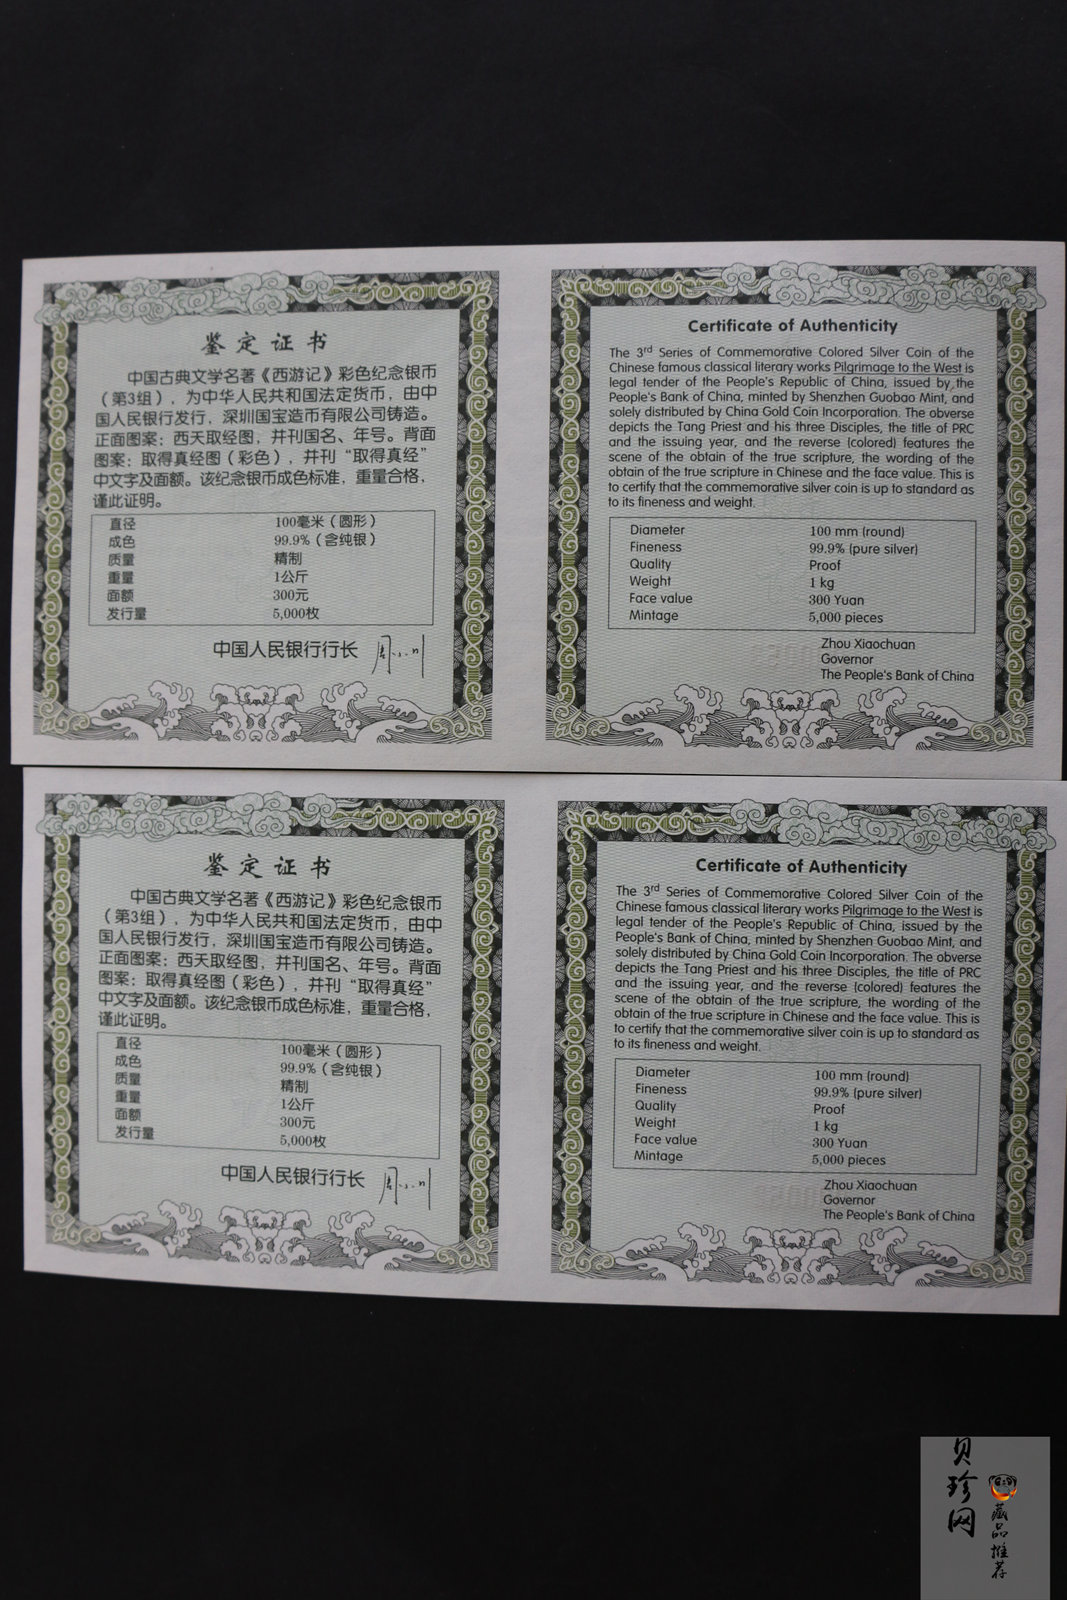 鉴定证书
中国古典文学名著《西游记》彩色纪念银币
（第3组），为中华人民共和国法定货币，由中
国人民银行发行，深圳国宝造币有限公司铸造。
正面图案：西天取经图，并刊国名、年号。背面
图案：取得真经图（彩色），并刊“取得真经”
中文字及面额。该纪念银币成色标准，重量合格，
谨此证明。
直径 100毫米（圆形）
成色 99.9%（含纯银）
质量 精制
重量 1公斤
面额 300元
发行量 5,000枚
中国人民银行行长 周小川
Certificate of Authenticity
The 3rd Series of Commemorative Colored Silver Coin of the
Chinese famous classical literary works Pilgrimage to the West is
legal tender of the People's Republic of China, issued by the
People's Bank of China, minted by Shenzhen Guobao Mint, and
solely distributed by China Gold Coin Incorporation. The obverse
depicts the Tang Priest and his three Disciples, the title of PRC
and the issuing year, and the reverse (colored) features the
scene of the obtain of the true scripture, the wording of the
obtain of the true scripture in Chinese and the face value. This is
to certify that the commemorative silver coin is up to standard as
to its fineness and weight.
Diameter 100 mm (round)
Fineness 99.9% (pure silver)
Quality Proof
Weight 1 kg
Face value 300 Yuan
Mintage 5,000 pieces
Zhou Xiaochuan
Governor
The People's Bank of China
鉴定证书
中国古典文学名著《西游记》彩色纪念银币
（第3组），为中华人民共和国法定货币，由中
国人民银行发行，深圳国宝造币有限公司铸造。
正面图案：西天取经图，并刊国名、年号。背面
图案：取得真经图（彩色），并刊“取得真经”
中文字及面额。该纪念银币成色标准，重量合格，
谨此证明。
直径 100毫米（圆形）
成色 99.9%（含纯银）
质量 精制
重量 1公斤
面额 300元
发行量 5,000枚
中国人民银行行长 周小川
Certificate of Authenticity
The 3rd Series of Commemorative Colored Silver Coin of the
Chinese famous classical literary works Pilgrimage to the West is
legal tender of the People's Republic of China, issued by the
People's Bank of China, minted by Shenzhen Guobao Mint, and
solely distributed by China Gold Coin Incorporation. The obverse
depicts the Tang Priest and his three Disciples, the title of PRC
and the issuing year, and the reverse (colored) features the
scene of the obtain of the true scripture, the wording of the
obtain of the true scripture in Chinese and the face value. This is
to certify that the commemorative silver coin is up to standard as
to its fineness and weight.
Diameter 100 mm (round)
Fineness 99.9% (pure silver)
Quality Proof
Weight 1 kg
Face value 300 Yuan
Mintage 5,000 pieces
Zhou Xiaochuan
Governor
The People's Bank of China
贝珍网
藏品推荐